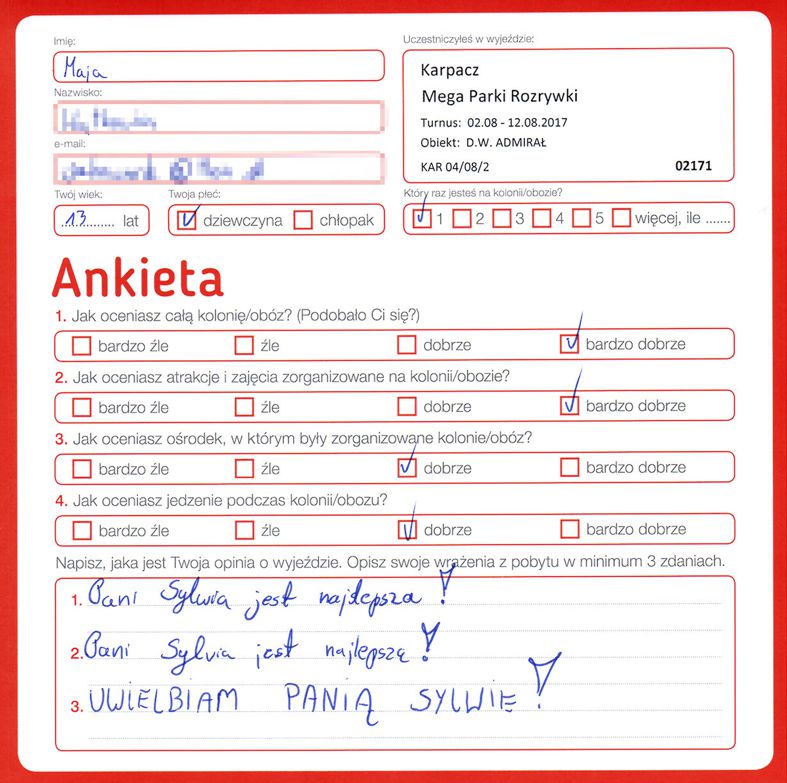 Imię:
Maja
Uczestniczyłeś w wyjeździe:
Karpacz
Mega Parki Rozrywki
Turnus: 02.08 - 12.08.2017
Obiekt: D.W. ADMIRAŁ
KAR 04/08/2 02171
Nazwisko:
e-mail:
Twój wiek: Twoja płeć:
13 lat dziewczyna chłopak
Który raz jesteś na kolonii/obozie?
1 2 3 4 5 więcej, ile .......
Ankieta
1. Jak oceniasz całą kolonię/obóz? (Podobało Ci się?)
bardzo źle źle dobrze bardzo dobrze
2. Jak oceniasz atrakcje i zajęcia zorganizowane na kolonii/obozie?
bardzo źle źle dobrze bardzo dobrze
3. Jak oceniasz ośrodek, w którym były zorganizowane kolonie/obóz?
bardzo źle źle dobrze bardzo dobrze
4. Jak oceniasz jedzenie podczas kolonii/obozu?
bardzo źle źle dobrze bardzo dobrze
Napisz, jaka jest Twoja opinia o wyjeździe. Opisz swoje wrażenia z pobytu w minimum 3 zdaniach.
1. Pani Sylwia jest najlepsza!
2. Pani Sylvia jest najlepszą!
3. UWIELBIAM PANIĄ SYLWIE!